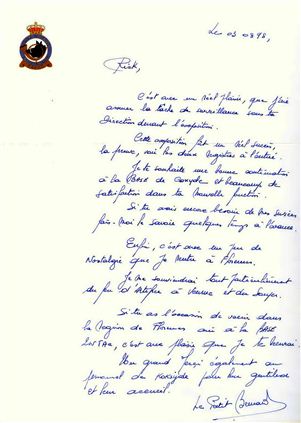 Le 03 0898,
Rick,
C'est avec un réel plaisir, que j'ai
assumé la tâche de surveillance sous ta
Direction durant l'exposition.
Cette exposition fût un réel succès,
la preuve, voir les deux registres à l'entrée.
Je te souhaite une bonne continuation
à la Base de Coxyde et beaucoup de
satisfaction dans ta nouvelle fonction.
Si tu avais encore besoin de mes services
fais-moi le savoir quelques temps à l'avance.
Enfin, c'est avec un peu de
Nostalgie que je rentre à Florennes.
Je me souviendrai tout particulièrement
du feu d'artifice à et du Souper.
Si tu as l'occasion de venir dans
la Région de Florennes ou à la BASE
, c'est avec plaisir que je te
Un grand merci également au
personnel de Koksijde pour leur gentillesse
et leur accueil.
Le Petit Bernard